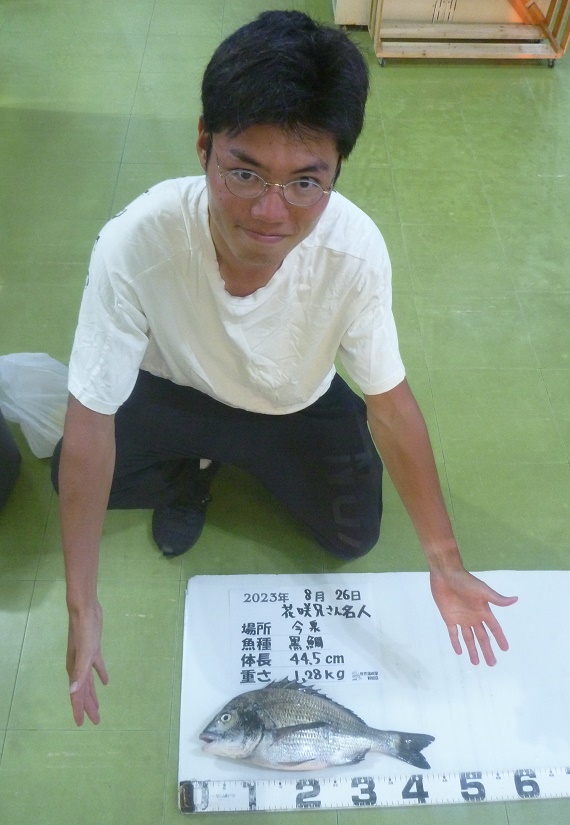 2023年 8月 26日
花咲兄さん名人
場所 今泉
魚種 黒鯛
体長 44.5 cm
重さ 1.28 kg
0 1 2 3 4 5 6